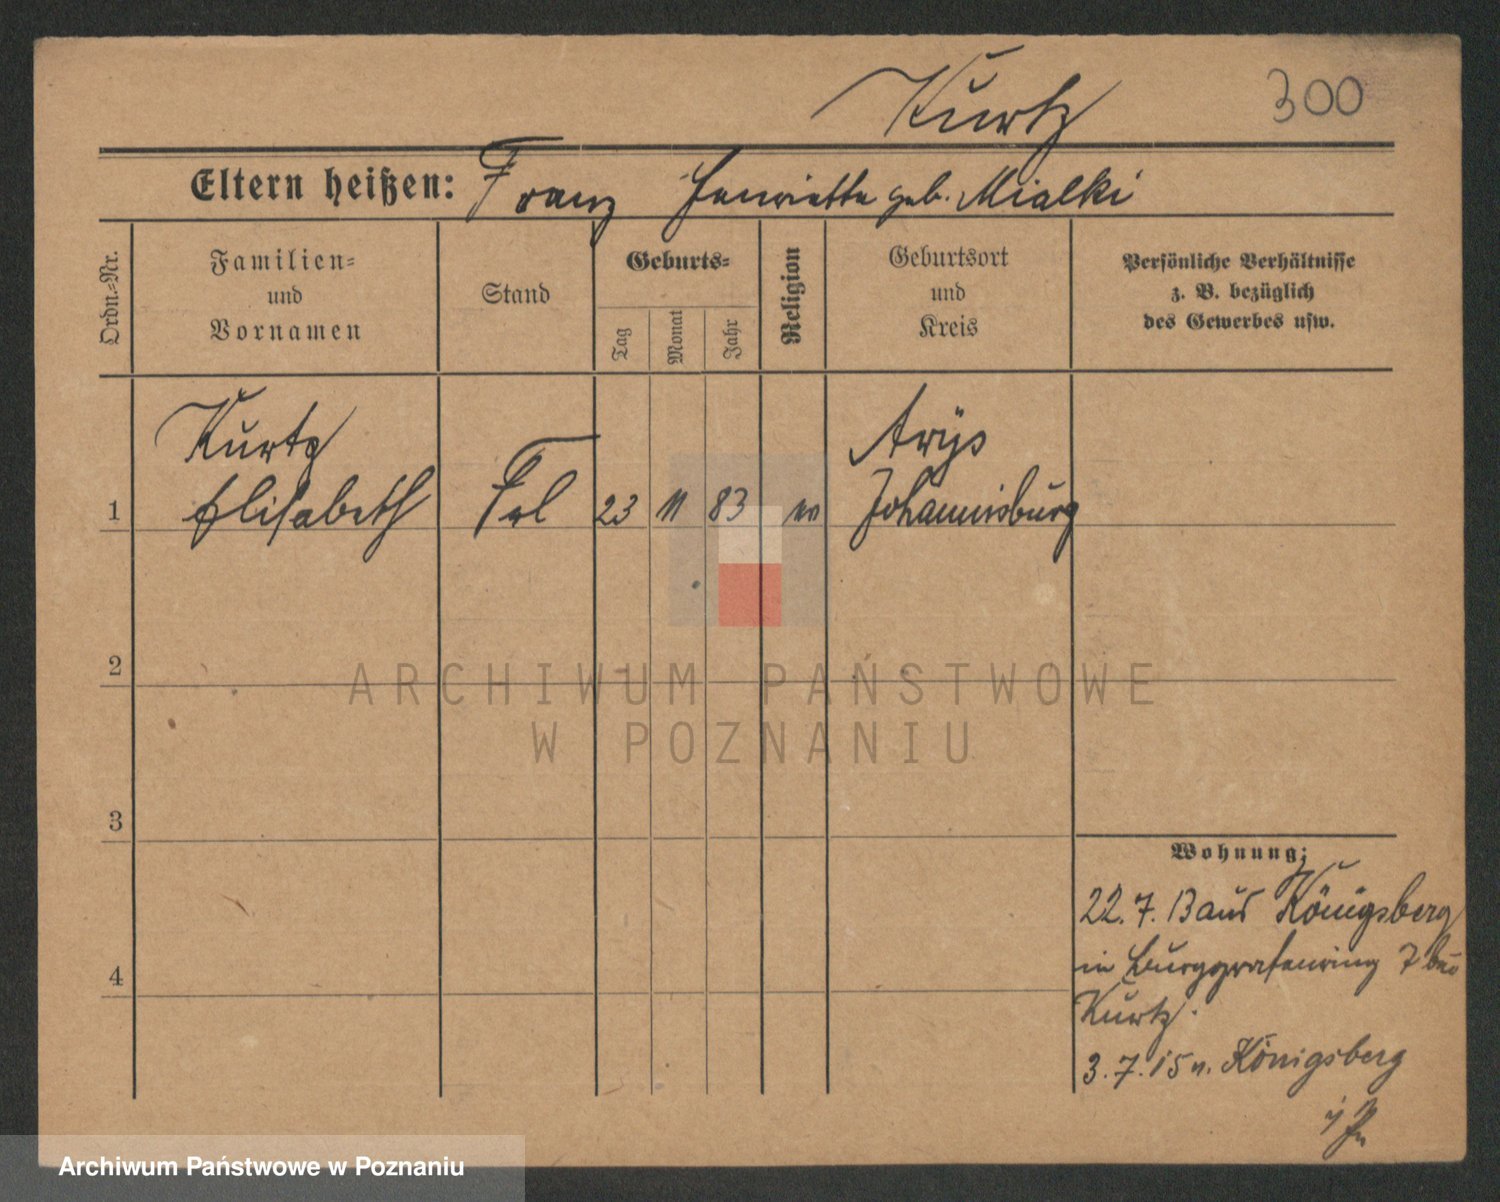 Kurtz
300
Eltern heißen: Franz Henriette geb. Mialki
Ordn.=Nr.
Familien=
und
Vornamen
Stand
Geburts=
Tag
Monat
Jahr
Religion
Geburtsort
und
Kreis
Persönliche Verhältnisse
z. B. bezüglich
des Gewerbes usw.
Kurtz
Elisabeth
Frl
Arys
Johannisburg
1
23
11
83
ev
2
ARCHIWUM PAŃSTWOWE
W POZNANIU
3
Wohnung:
22.7.13 aus Königsberg
in Burggrafenring 7 bei
Kurtz.
4
3.7.15 n. Königsberg
i/Pr
Archiwum Państwowe w Poznaniu